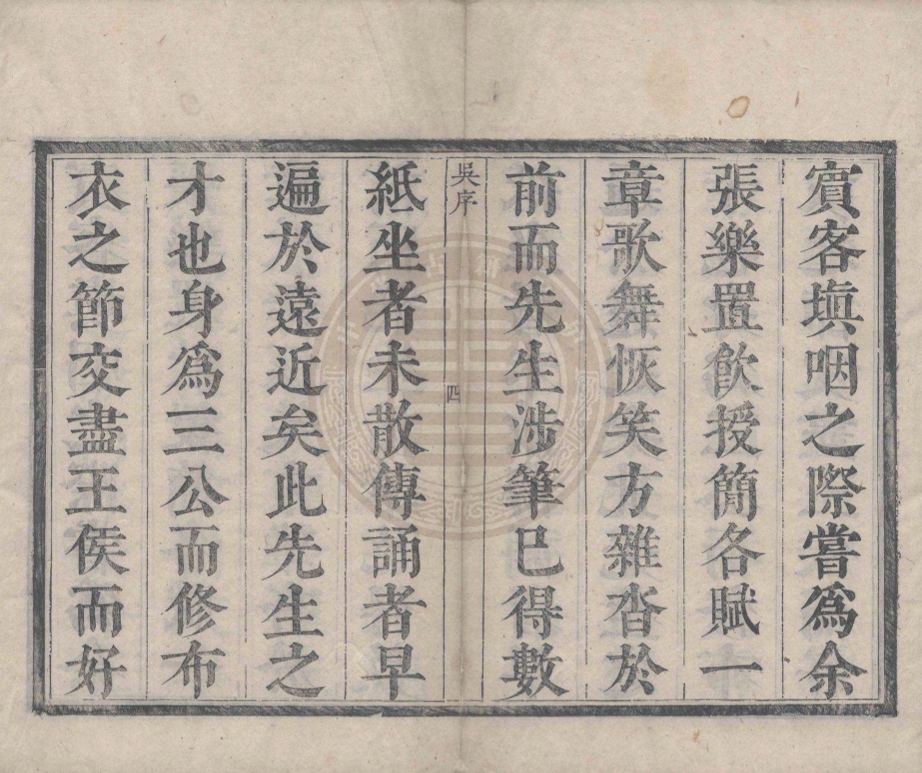 賔客塡咽之際嘗爲余
張樂置飮授簡各賦一
章歌舞恢笑方雜沓於
前而先生涉筆已得數
吳序
四
紙坐者未散傳誦者早
遍於遠近矣此先生之
才也身爲三公而修布
衣之節交盡王侯而好